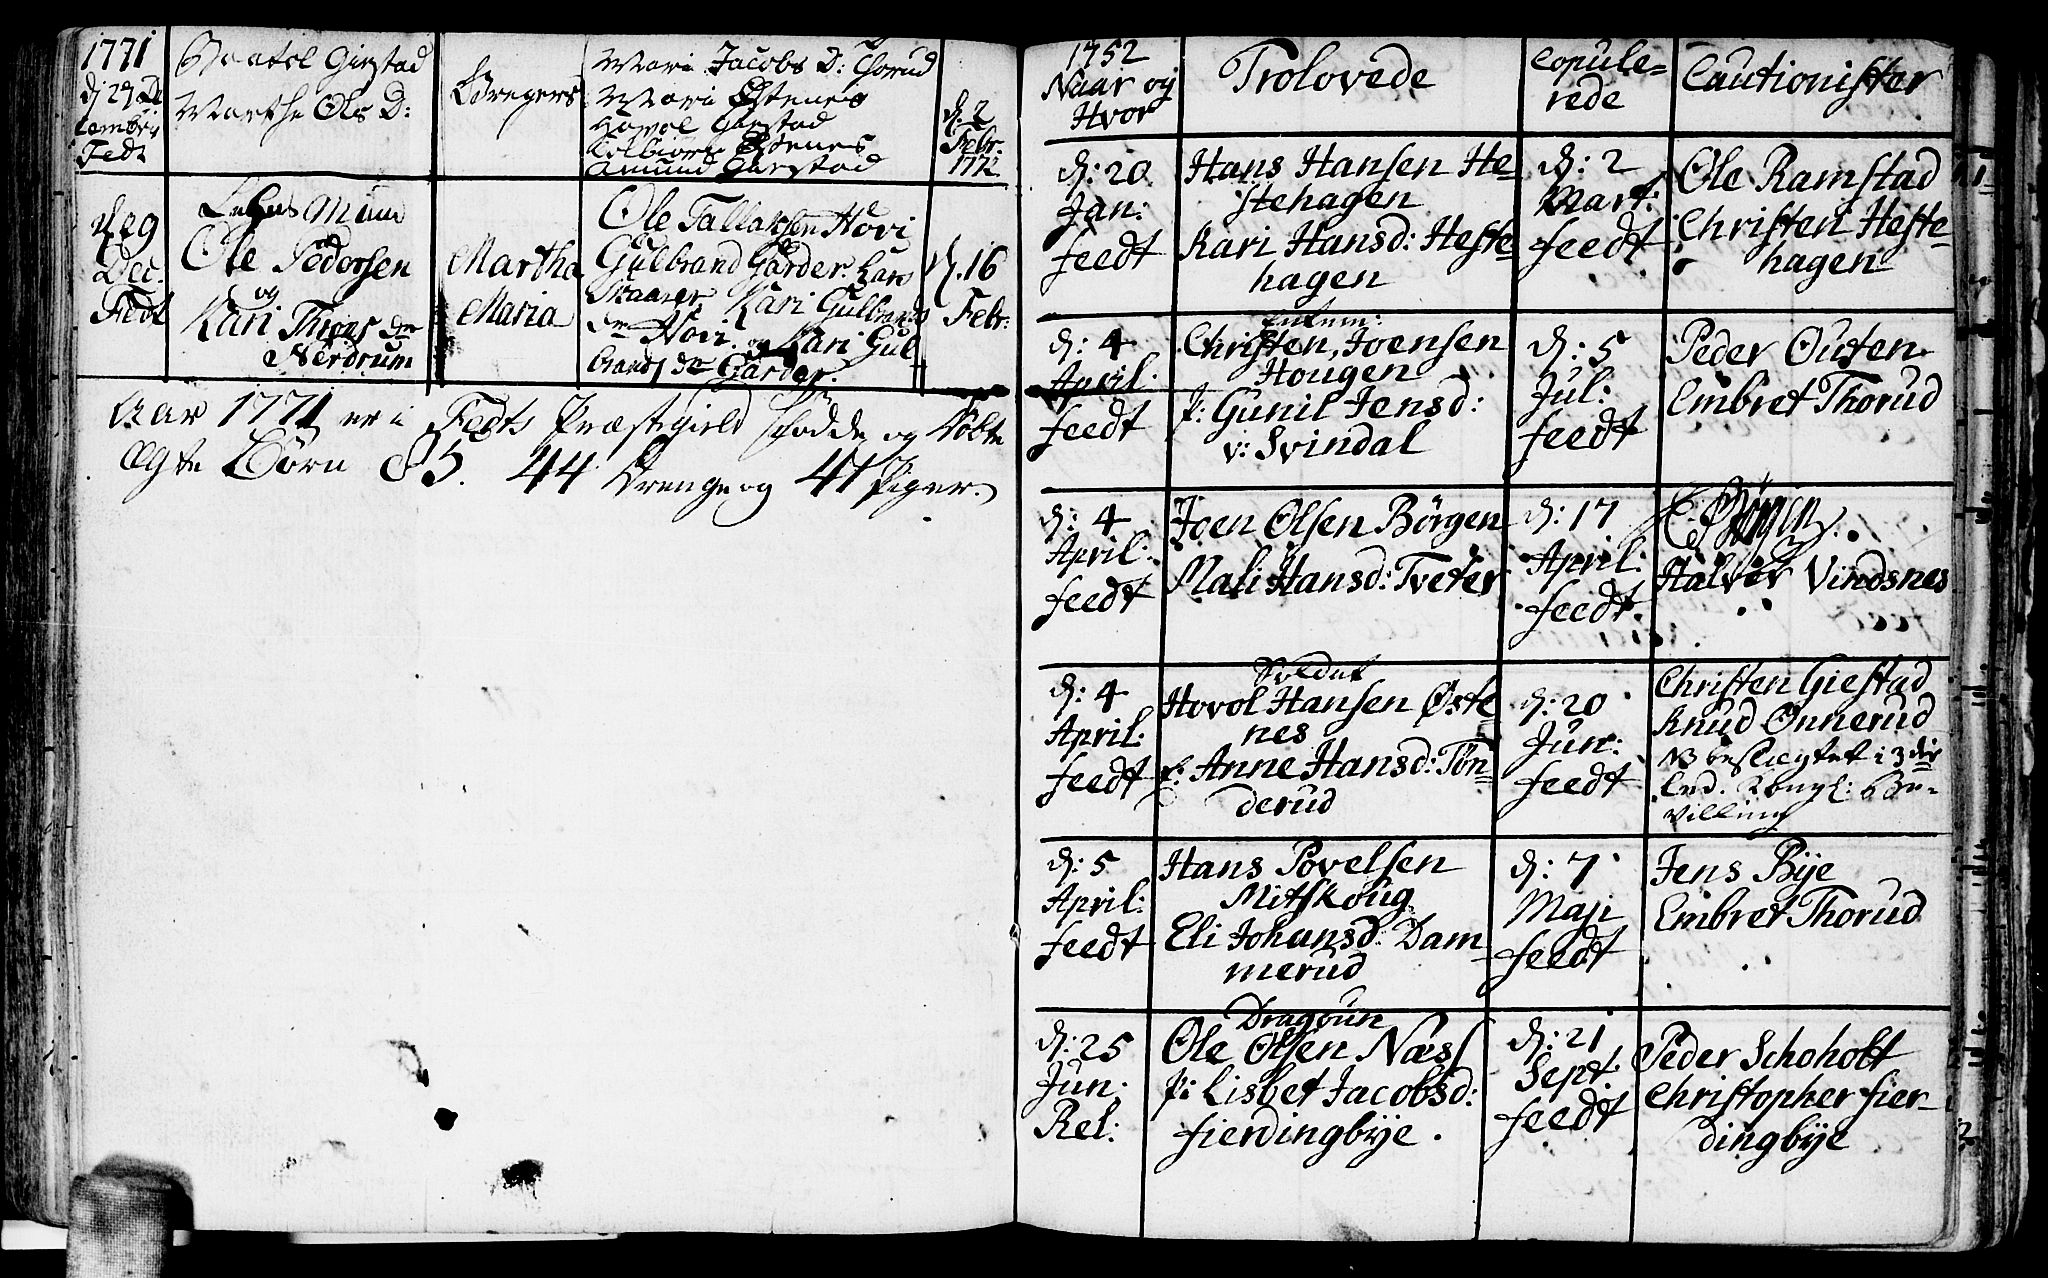 1771
Giestad
Marthe Ols D:
Fedt
Gregers
Mari Jacobs D: Thorud
Mari Østenes
Hovol Giestad
Østenes
Amund Giestad
d: 2
Febr.
1772
d. 29
Dec.
Fedt
Ole Pedersen
og
Kari
Nerdrum
Martha
Maria
Ole Tallaksen Hovi
Gulbrand Garder. Lars
Skaarer Kari Gulbrands
Hovi. og Kari Gul
brands dr Garder.
d. 16
Febr:
Aar 1771 er i Fedts Præstegield fødde og døbte
ægte Børn 85. 44 Drenge og 41 Piger.
1752
Naar og
Hvor
Trolovede
Copule=
rede
Cautionister
d: 20
Jan:
feedt
Hans Hansen He=
stehagen
Kari Hansd: Heste=
hagen
d: 2
Mart:
feedt
Ole Ramstad
Christen Heste=
hagen
d: 4
April:
feedt
Enkem:
Christen Joensen
Hougen
P: Gunil Jensd:
v: Svindal
d: 5
Jul:
feedt
Peder Outen
Embret Thorud
d: 4
April:
feedt
Joen Olsen Børgen
Mali Hansd: Tveter
d: 17
April:
feedt.
Børgen
Halvor Vindsnes
d: 4
April:
feedt
Soldat
Hovol Hansen Øste
nes
P: Anne Hansd: Tøn=
derud
d: 20
Jun:
feedt
Christen Giestad
Knud Onnerud
NB beslægtet i 3die
Led. Kongl: Be=
villing
d: 5
April:
feedt
Hans Povelsen
Mitskoug
Eli Johansd: Dam
merud
d: 7
Maji
feedt
Jens Bije
Embret Thorud
d: 25
Jun:
Rel:
Dragoun
Ole Olsen Næss
P: Lisbet Jacobsd:
fierdingbije.
d: 21
Sept:
feedt
Peder Schoholt
Christopher fier=
dingbije